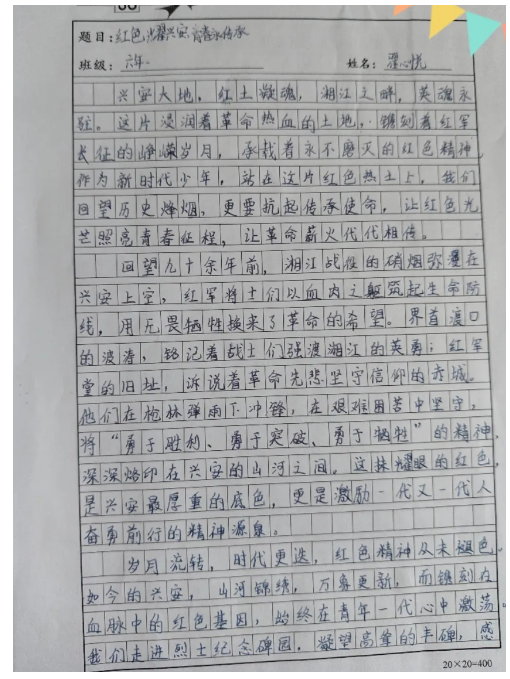 题目：红色光耀兴安 青春永传承
班级：六年． 姓名：
兴安大地，红土凝魂，湘江之畔，英魂永
驻。这片浸润着革命热血的土地，镌刻着红军
长征的峥嵘岁月，承载着永不磨灭的红色精神。
作为新时代少年，站在这片红色热土上，我们
回望历史烽烟，更要抗起传承使命，让红色光
芒照亮青春征程，让革命薪火代代相传。
回望九十余年前，湘江战役的硝烟弥漫在
兴安上空，红军将士们以血肉之躯筑起生命防
线，用无畏牺牲换来了革命的希望。界首渡口
的波涛，铭记着战士们强渡湘江的英勇；红军
堂的旧址，诉说着革命先悲坚守信仰的赤城。
他们在枪林弹雨下冲锋，在艰难困苦中坚守，
将“勇于胜利、勇于突破、勇于牺牲”的精神，
深深烙印在兴安的山河之间。这抹耀眼的红色，
是兴安最厚重的底色，更是激励一代又一代人
奋勇前行的精神源泉。
岁月流转，时代更迭，红色精神从未褪色。
如今的兴安，山河锦绣，万象更新，而镌刻在
血脉中的红色基因，始终在青年一代心中激荡。
我们走进烈士纪念碑园，凝望高耸的丰碑，感
20×20=400